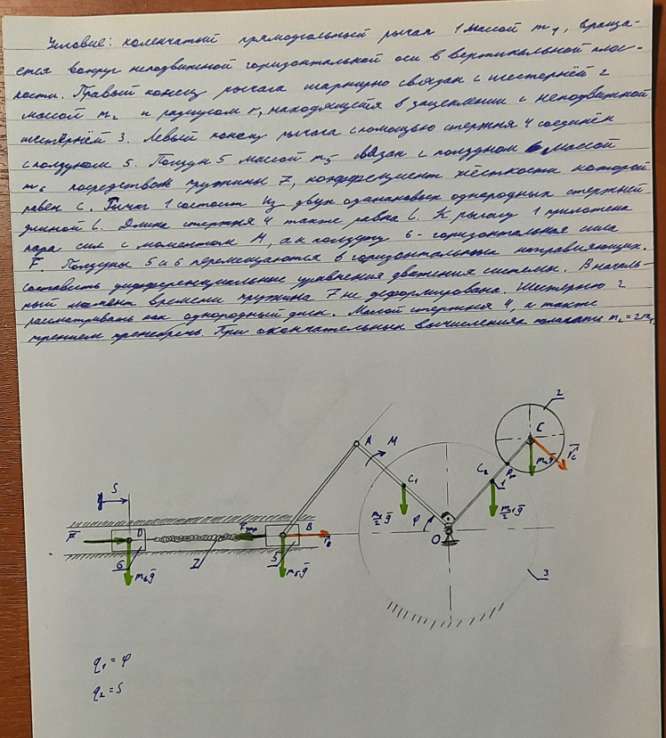 Условие: коленчатый прямоугольный рычаг 1 массой m₁, враща-
ется вокруг неподвижной горизонтальной оси в вертикальной плос-
кости. Правый конец рычага шарнирно связан с шестернёй 2
массой m₂ и радиусом r, находящейся в зацеплении с неподвижной
шестернёй 3. Левый конец рычага с помощью стержня 4 соединён
с ползуном 5. Ползун 5 массой m₅ связан с ползуном 6 массой
m₆ посредством пружины 7, коэффициент жёсткости которой
равен c. Рычаг 1 состоит из двух одинаковых однородных стержней
длиной l. Длина стержня 4 также равна l. К рычагу 1 приложена
пара сил с моментом M, а к ползуну 6 - горизонтальная сила
F. Ползуны 5 и 6 перемещаются в горизонтальных направляющих.
Составить дифференциальные уравнения движения системы. В началь-
ный момент времени пружина 7 не деформирована. Шестерню 2
рассматривать как однородный диск. Массой стержня 4, а также
трением пренебречь. При окончательных вычислениях полагать m₂=2m₁
2
A M C
C₁ C₂
m₂g
S
m₁/2 g φ m₁/2 g 1
F D B O
6 7 5
m₆g m₅g 3
q₁ = φ
q₂ = S